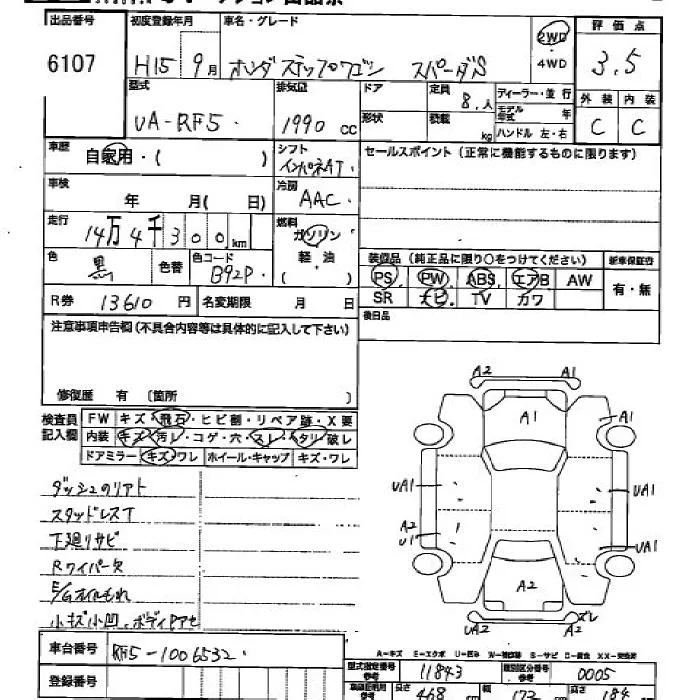 出品番号 初度登録年月 車名・グレード 評価点
6107 H15 9月 ホンダ ステップワゴン スパーダS 2WD 4WD 3.5
型式 排気量 ドア 定員 8.人 ディーラー・並行
UA-RF5. 1990 cc 形状 積載 kg モデル年式 年 外装 内装
ハンドル 左・右 C C
車歴 自家用・( ) シフト インパネAT. セールスポイント (正常に機能するものに限ります)
車検 年 月( 日) 冷房 AAC.
走行 14万4千300km 燃料 ガソリン 軽油
装備品 (純正品に限り○をつけてください) 新車保証書
色 黒 色替 色コード B92P. PS PW ABS エアB AW 有・無
R券 13610 円 名変期限 月 日 SR ナビ. TV カワ
注意事項申告欄(不具合内容等は具体的に記入して下さい) 後日品
修復歴 有 〔箇所 〕
検査員記入欄 FW キズ・飛石・ヒビ割・リペア跡・X要
内装 キズ・汚レ・コゲ・穴・スレ・タリ・破レ
ドアミラー キズ・ワレ ホイール・キャップ キズ・ワレ
ダッシュのリアト
スタッドレスT
下廻リサビ
Rワイパー欠
E/Gオイルもれ
小キズ小凹.ボディドアセ
A2 A1
A1 A1
UA1 UA1
A2 U1 UA1
A2
UA2 A2 ズレ
A-キズ E-エクボ U-凹み W-補修跡 S-サビ C-腐食 XX-交換済
車台番号 RF5-1006532. 型式指定番号 参考 11843 類別区分番号 参考 0005
登録番号 長さ 468 cm 幅 172 cm 高さ 184